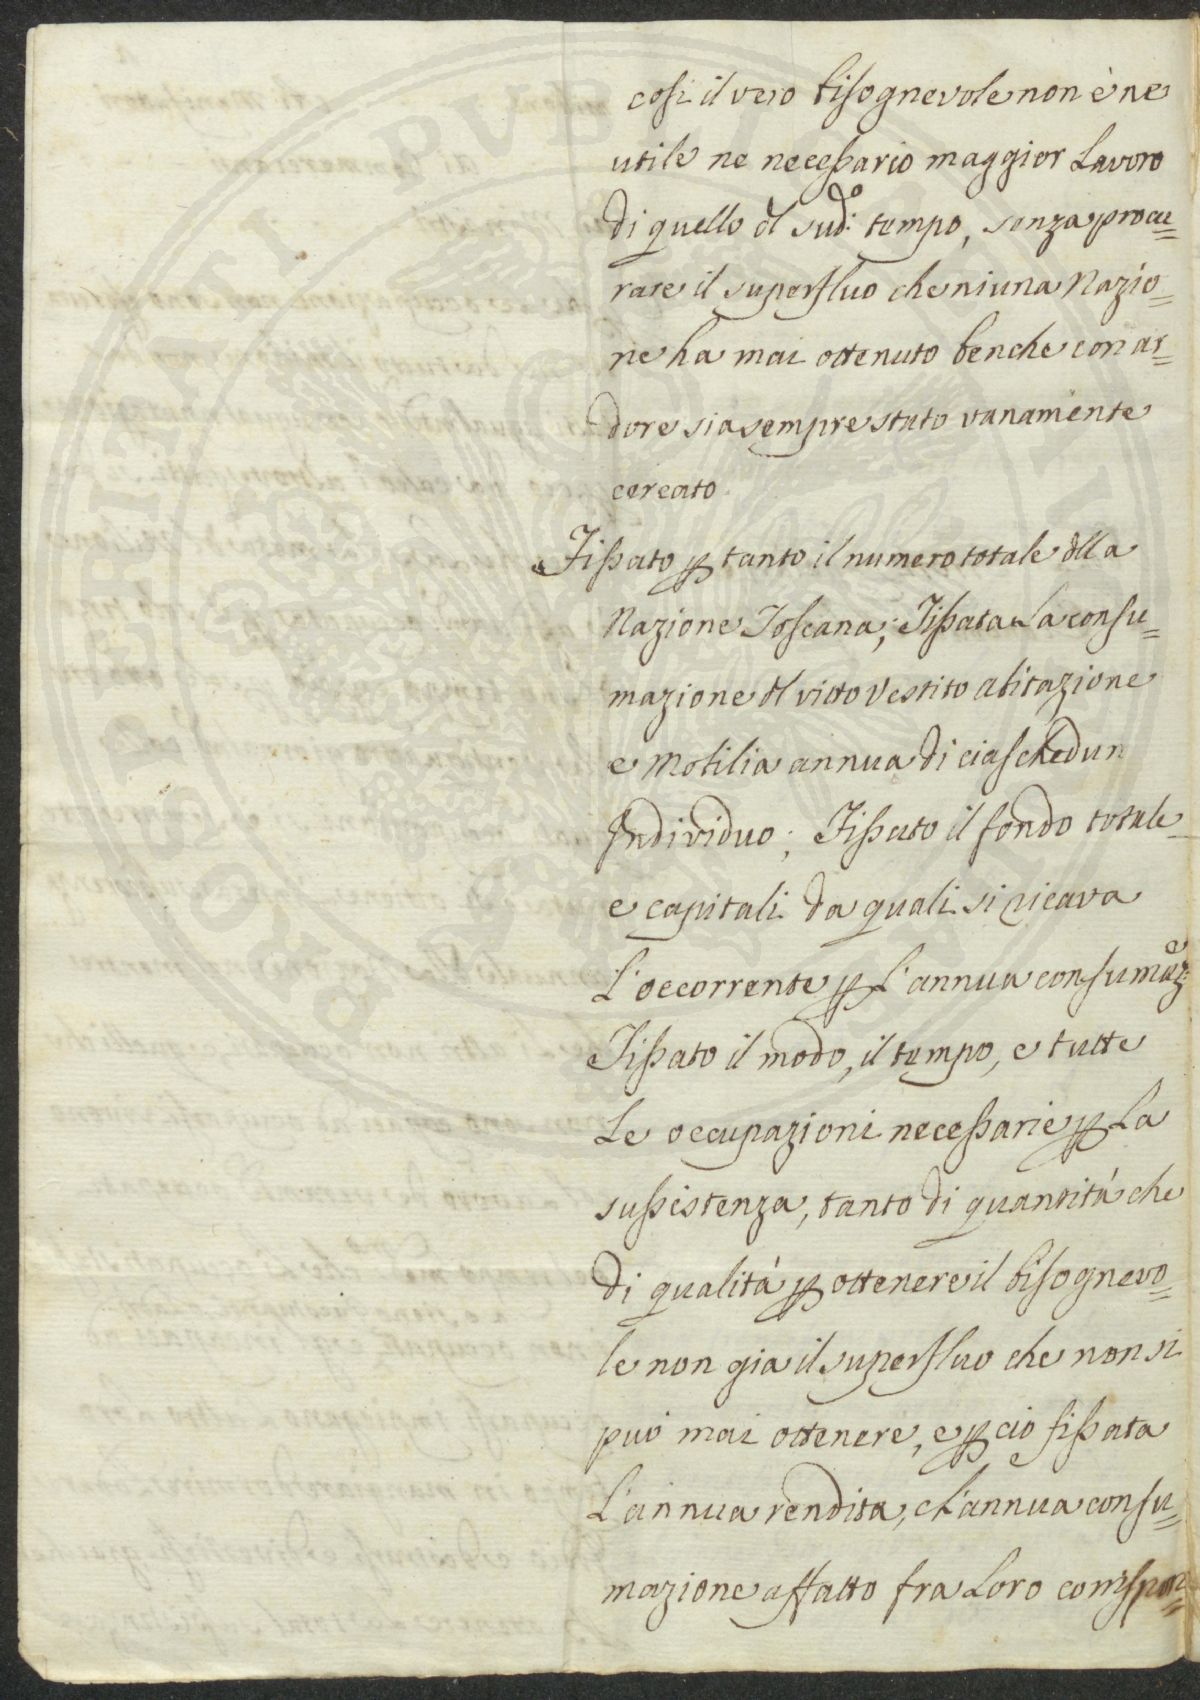 cosi il vero bisognevole non è ne
utile ne necessario maggior Lavoro
di quello dl sud.do tempo, senza procu=
rare il superfluo che niuna Nazio=
ne ha mai ottenuto benche con ar=
dore sia sempre stato vanamente
cercato
Fissato p tanto il numero totale dlla
Nazione Toscana; Fissata La consu=
mazione dl vitto Vestito abitazione
e Mobilia annua di ciaschedun
Individuo; Fissato il fondo totale
e capitali da quali si ricava
L'occorrente p L'annua consumaz.e
Fissato il modo, il tempo, e tutte
Le occupazioni necessarie p La
sussistenza, tanto di quantità che
di qualità p ottenere il bisognevo=
le non gia il superfluo che non si
può mai ottenere, e p ciò fissata
L'annua rendita, e L'annua consu=
mazione affatto fra Loro corrispon=
PROSPERITATI PUBLICAE